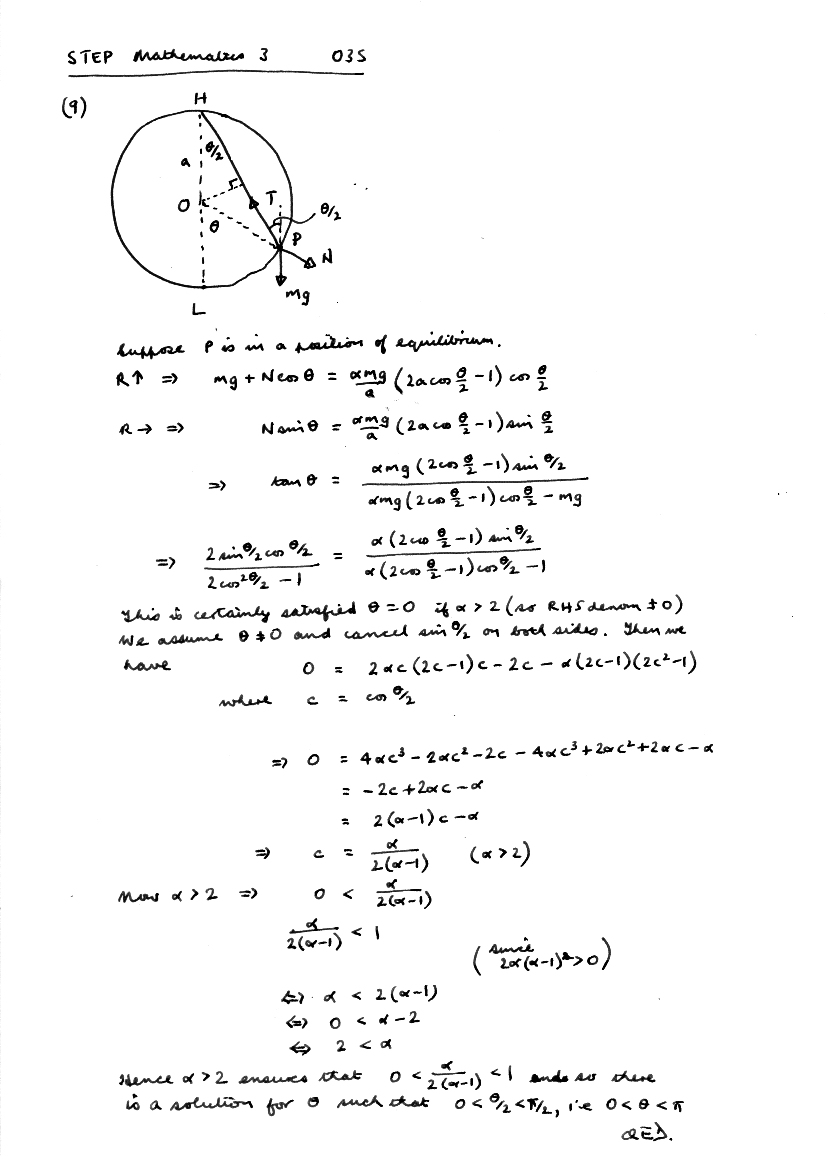 STEP Mathematics 3 03S
(9)
H
a
θ/2
O
T
θ
θ/2
P
N
mg
L
Suppose P is in a position of equilibrium.
R↑ ⇒ mg + N cos θ = αmg/a (2a cos θ/2 - 1) cos θ/2
R → ⇒ N sin θ = αmg/a (2a cos θ/2 - 1) sin θ/2
⇒ tan θ = αmg (2cos θ/2 - 1) sin θ/2 / αmg (2cos θ/2 - 1) cos θ/2 - mg
⇒ 2 sin θ/2 cos θ/2 / 2 cos² θ/2 - 1 = α (2cos θ/2 - 1) sin θ/2 / α (2cos θ/2 - 1) cos θ/2 - 1
This is certainly satisfied θ = 0 if α > 2 (so RHS denom ≠ 0)
We assume θ ≠ 0 and cancel sin θ/2 on both sides. Then we
have 0 = 2αc (2c-1)c - 2c - α(2c-1)(2c²-1)
where c = cos θ/2
⇒ 0 = 4αc³ - 2αc² - 2c - 4αc³ + 2αc² + 2αc - α
= -2c + 2αc - α
= 2(α-1)c - α
⇒ c = α / 2(α-1) (α > 2)
Now α > 2 ⇒ 0 < α / 2(α-1)
α / 2(α-1) < 1
(since 2α(α-1)² > 0)
⇔ α < 2(α-1)
⇔ 0 < α - 2
⇔ 2 < α
Hence α > 2 ensures that 0 < α / 2(α-1) < 1 and so there
is a solution for θ such that 0 < θ/2 < π/2, i.e 0 < θ < π
QED.